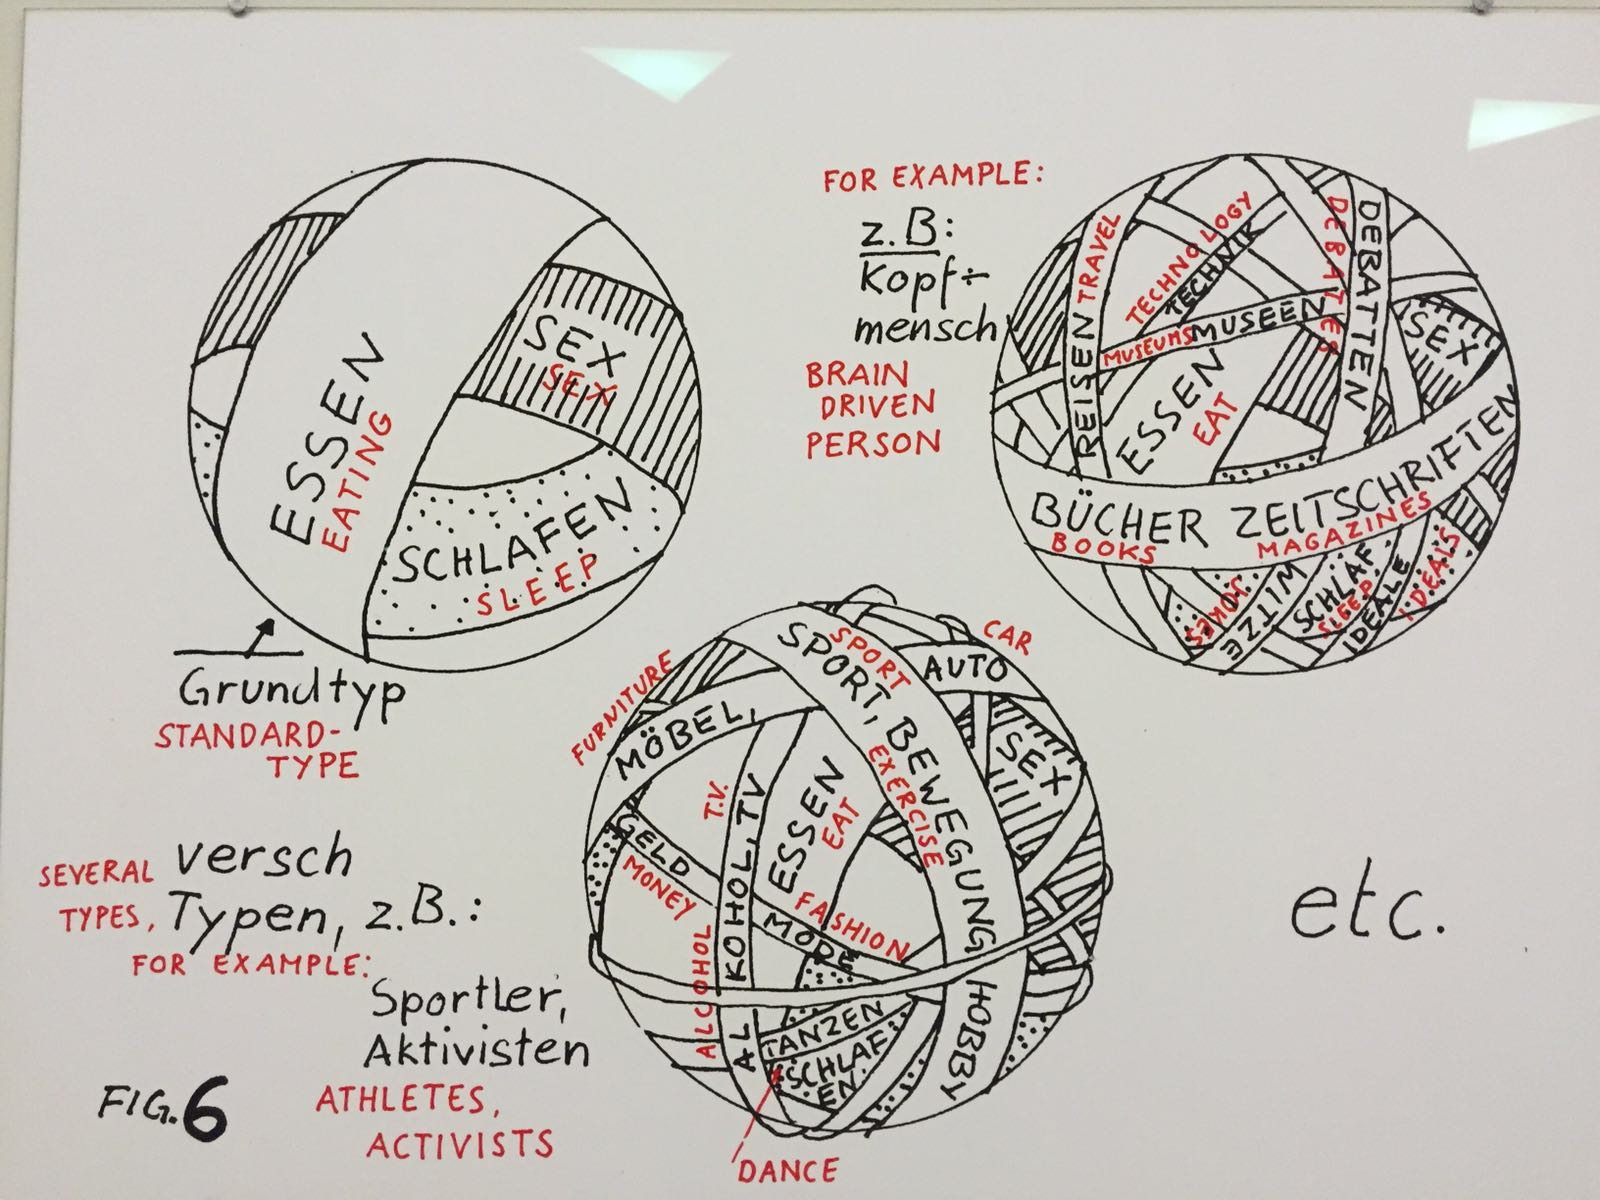 ESSEN
EATING
SEX
SEX
SCHLAFEN
SLEEP
Grundtyp
STANDARD-
TYPE
FOR EXAMPLE:
z.B:
Kopf÷
mensch
BRAIN
DRIVEN
PERSON
REISEN TRAVEL
TECHNOLOGY
TECHNIK
DEBATTEN
DEBATES
MUSEUMS MUSEEN
ESSEN
EAT
SEX
BÜCHER ZEITSCHRIFTEN
BOOKS MAGAZINES
JOKES
WITZE
SCHLAF
SLEEP
IDEALE
IDEALS
SEVERAL versch
TYPES, Typen, z.B.:
FOR EXAMPLE:
Sportler,
Aktivisten
ATHLETES,
ACTIVISTS
FURNITURE
MÖBEL,
SPORT
SPORT, BEWEGUNG HOBBY
EXERCISE
CAR
AUTO
SEX
T.V.
ALCOHOL
ALKOHOL, TV
ESSEN
EAT
GELD
MONEY
FASHION
MODE
TANZEN
SCHLAF
EN
DANCE
etc.
FIG. 6